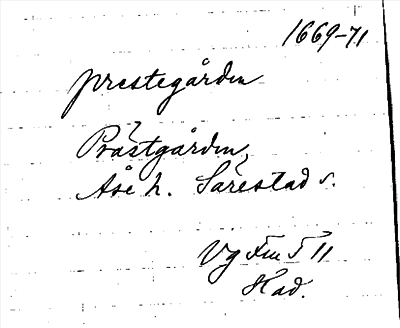 1669-71
prestegården
Prästgården,
Åse h. Särestad s.
Vg Fm 5 11
Had.